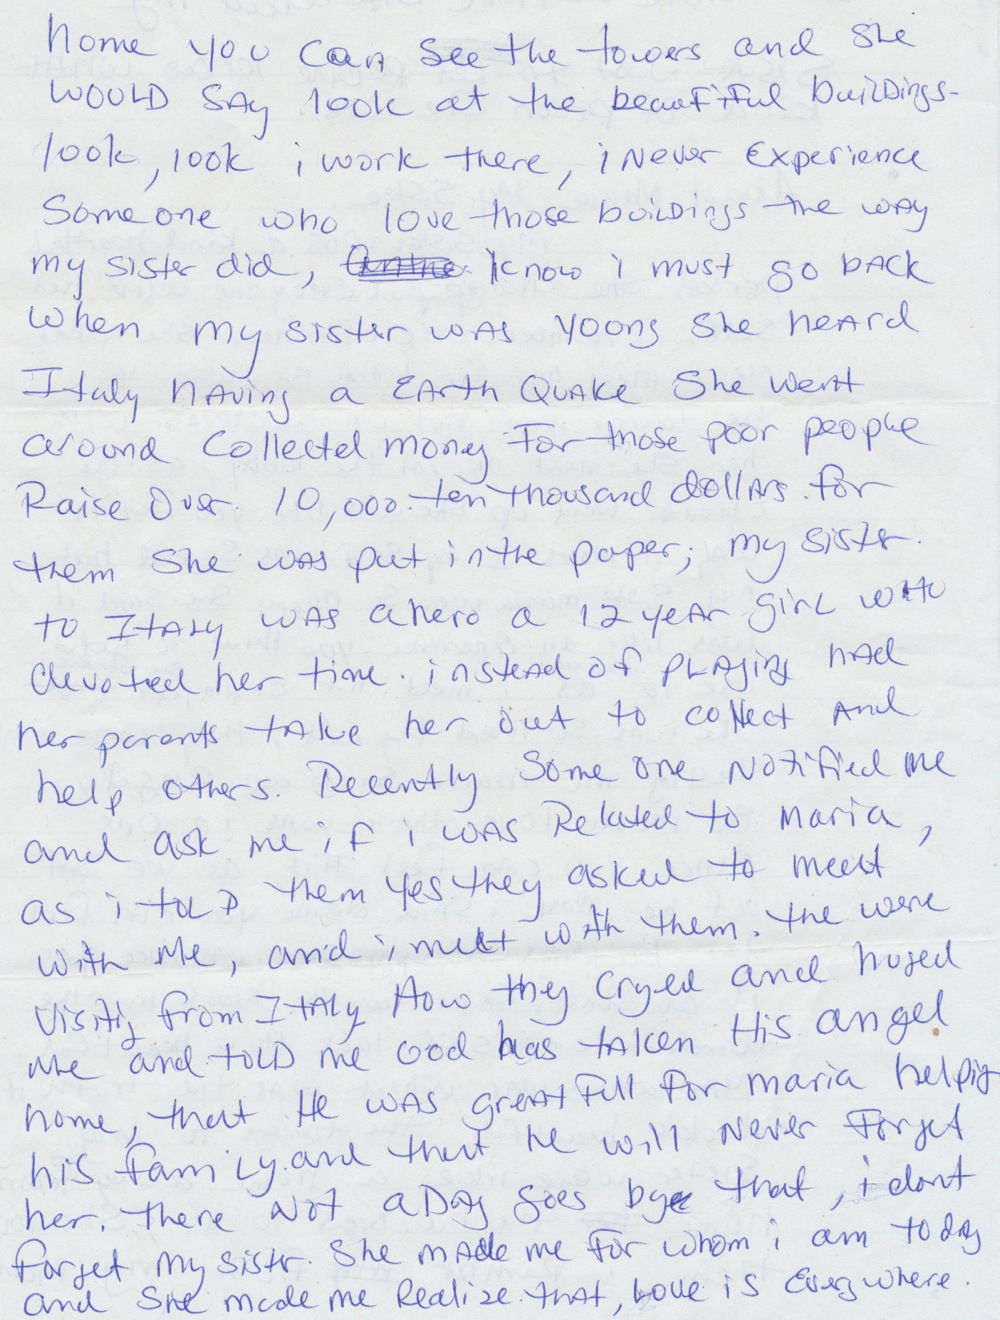 home you can see the towers and she
WOULD SAY look at the beautiful buildings-
look, look i work there, i Never Experience
Someone who love those buildings the way
my sister did, know i must go back
when my sister was young she heard
Italy having a Earth Quake She went
around Collected money For those poor people
Raise Over. 10,000 ten thousand dollars. for
them She was put in the paper; my sister.
to Italy was a hero a 12 year girl who
devoted her time. instead of playing had
her parents take her out to collect And
help others. Recently Some one Notified me
and ask me, if i was Related to Maria,
as i told them Yes they asked to meet
with me, and i meet with them. the were
visitig from Italy How they Cryed and huged
me and told me God has taken His angel
home, that He was greatfull For maria helpig
his family. and that he will Never Forget
her. there Not a Day goes bye that, i dont
forget my sister. She made me for whom i am today
and She made me Realize. that, Love is Everywhere.